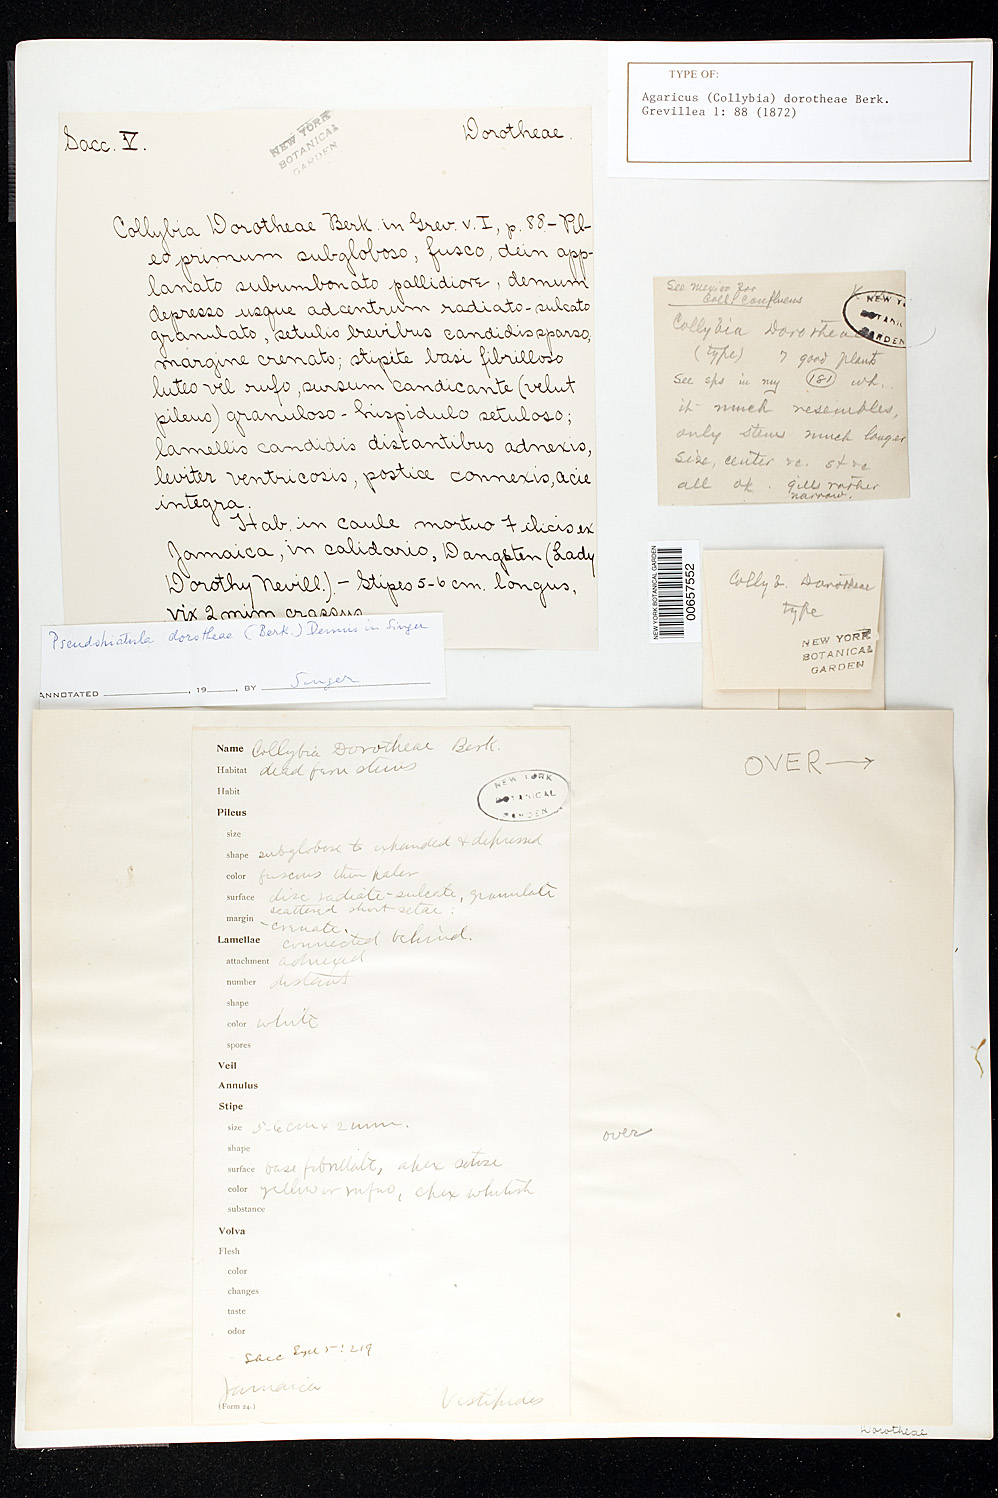 TYPE OF:
Agaricus (Collybia) dorotheae Berk.
Grevillea 1: 88 (1872)
Sacc. V.
Dorotheae.
NEW YORK
BOTANICAL
GARDEN
Collybia Dorotheae Berk. in Grev. v. I, p. 88 – Pil-
eo primum subgloboso, fusco, dein app-
lanato subumbonato pallidiore, demum
depresso usque ad centrum radiato-sulcato
granulato, setulis brevibus candidis sparso,
margine crenato; stipite basi fibrilloso
luteo vel rufo, sursum candicante (velut
pileus) granuloso-hispidulo setuloso;
lamellis candidis distantibus adnexis,
leviter ventricosis, postice connexis, acie
integra.
Hab. in caule mortuo Filicis ex
Jamaica, in calidario, Dangsten (Lady
Dorothy Nevill.) – Stipes 5-6 cm. longus,
vix 2 mm crassus
See Mexico for
Coll. confluens
NEW Y
BOTANIC
GARDEN
Collybia Dorotheae
(type) 7 good plants
See sps in my 181 wh.
it much resembles,
only stems much longer
size, center &c. st &c
all ok. Gills rather
narrow.
NEW YORK BOTANICAL GARDEN
00657552
Collyb. Dorotheae
type
NEW YORK
BOTANICAL
GARDEN
Pseudohiatula dorotheae (Berk.) Dennis in Singer
ANNOTATED , 19 , BY Singer
Name Collybia Dorotheae Berk.
Habitat dead fern stems
Habit
NEW YORK
BOTANICAL
GARDEN
Pileus
size
shape subglobose to expanded & depressed
color fuscous then paler
surface disc radiate-sulcate, granulate
scattered short setae:
margin -crenate.
Lamellae connected behind.
attachment adnexed
number distant
shape
color white
spores
Veil
Annulus
Stipe
size 5-6 cm x 2 mm.
shape
surface base fibrillate, apex setose
color yellow or rufus, apex whitish
substance
Volva
Flesh
color
changes
taste
odor
Sacc Syll 5: 219
Jamaica
Vestipedes
(Form 24.)
OVER →
over
Dorotheae